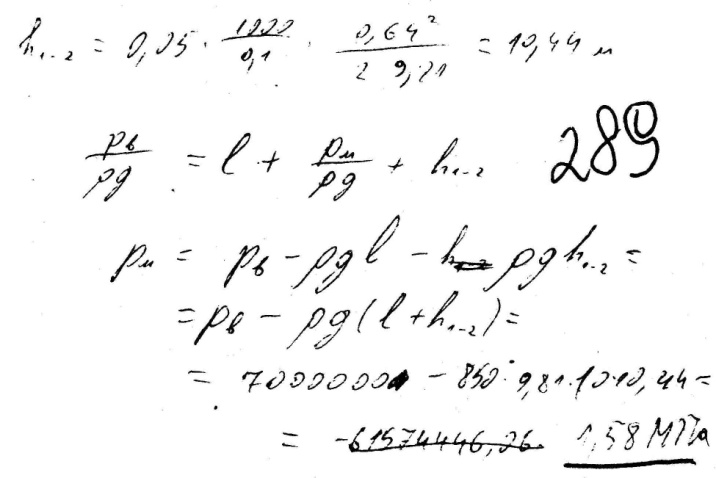 h₁₋₂ = 0,05 · 1000/0,1 · 0,64²/2 9,81 = 10,44 м
pв/ρg = l + pм/ρg + h₁₋₂ 289
pм = pв − ρgl − ρgh₁₋₂ =
= pв − ρg(l + h₁₋₂) =
= 10000000 − 850 · 9,81 · 1010,44 =
= 1,58 МПа